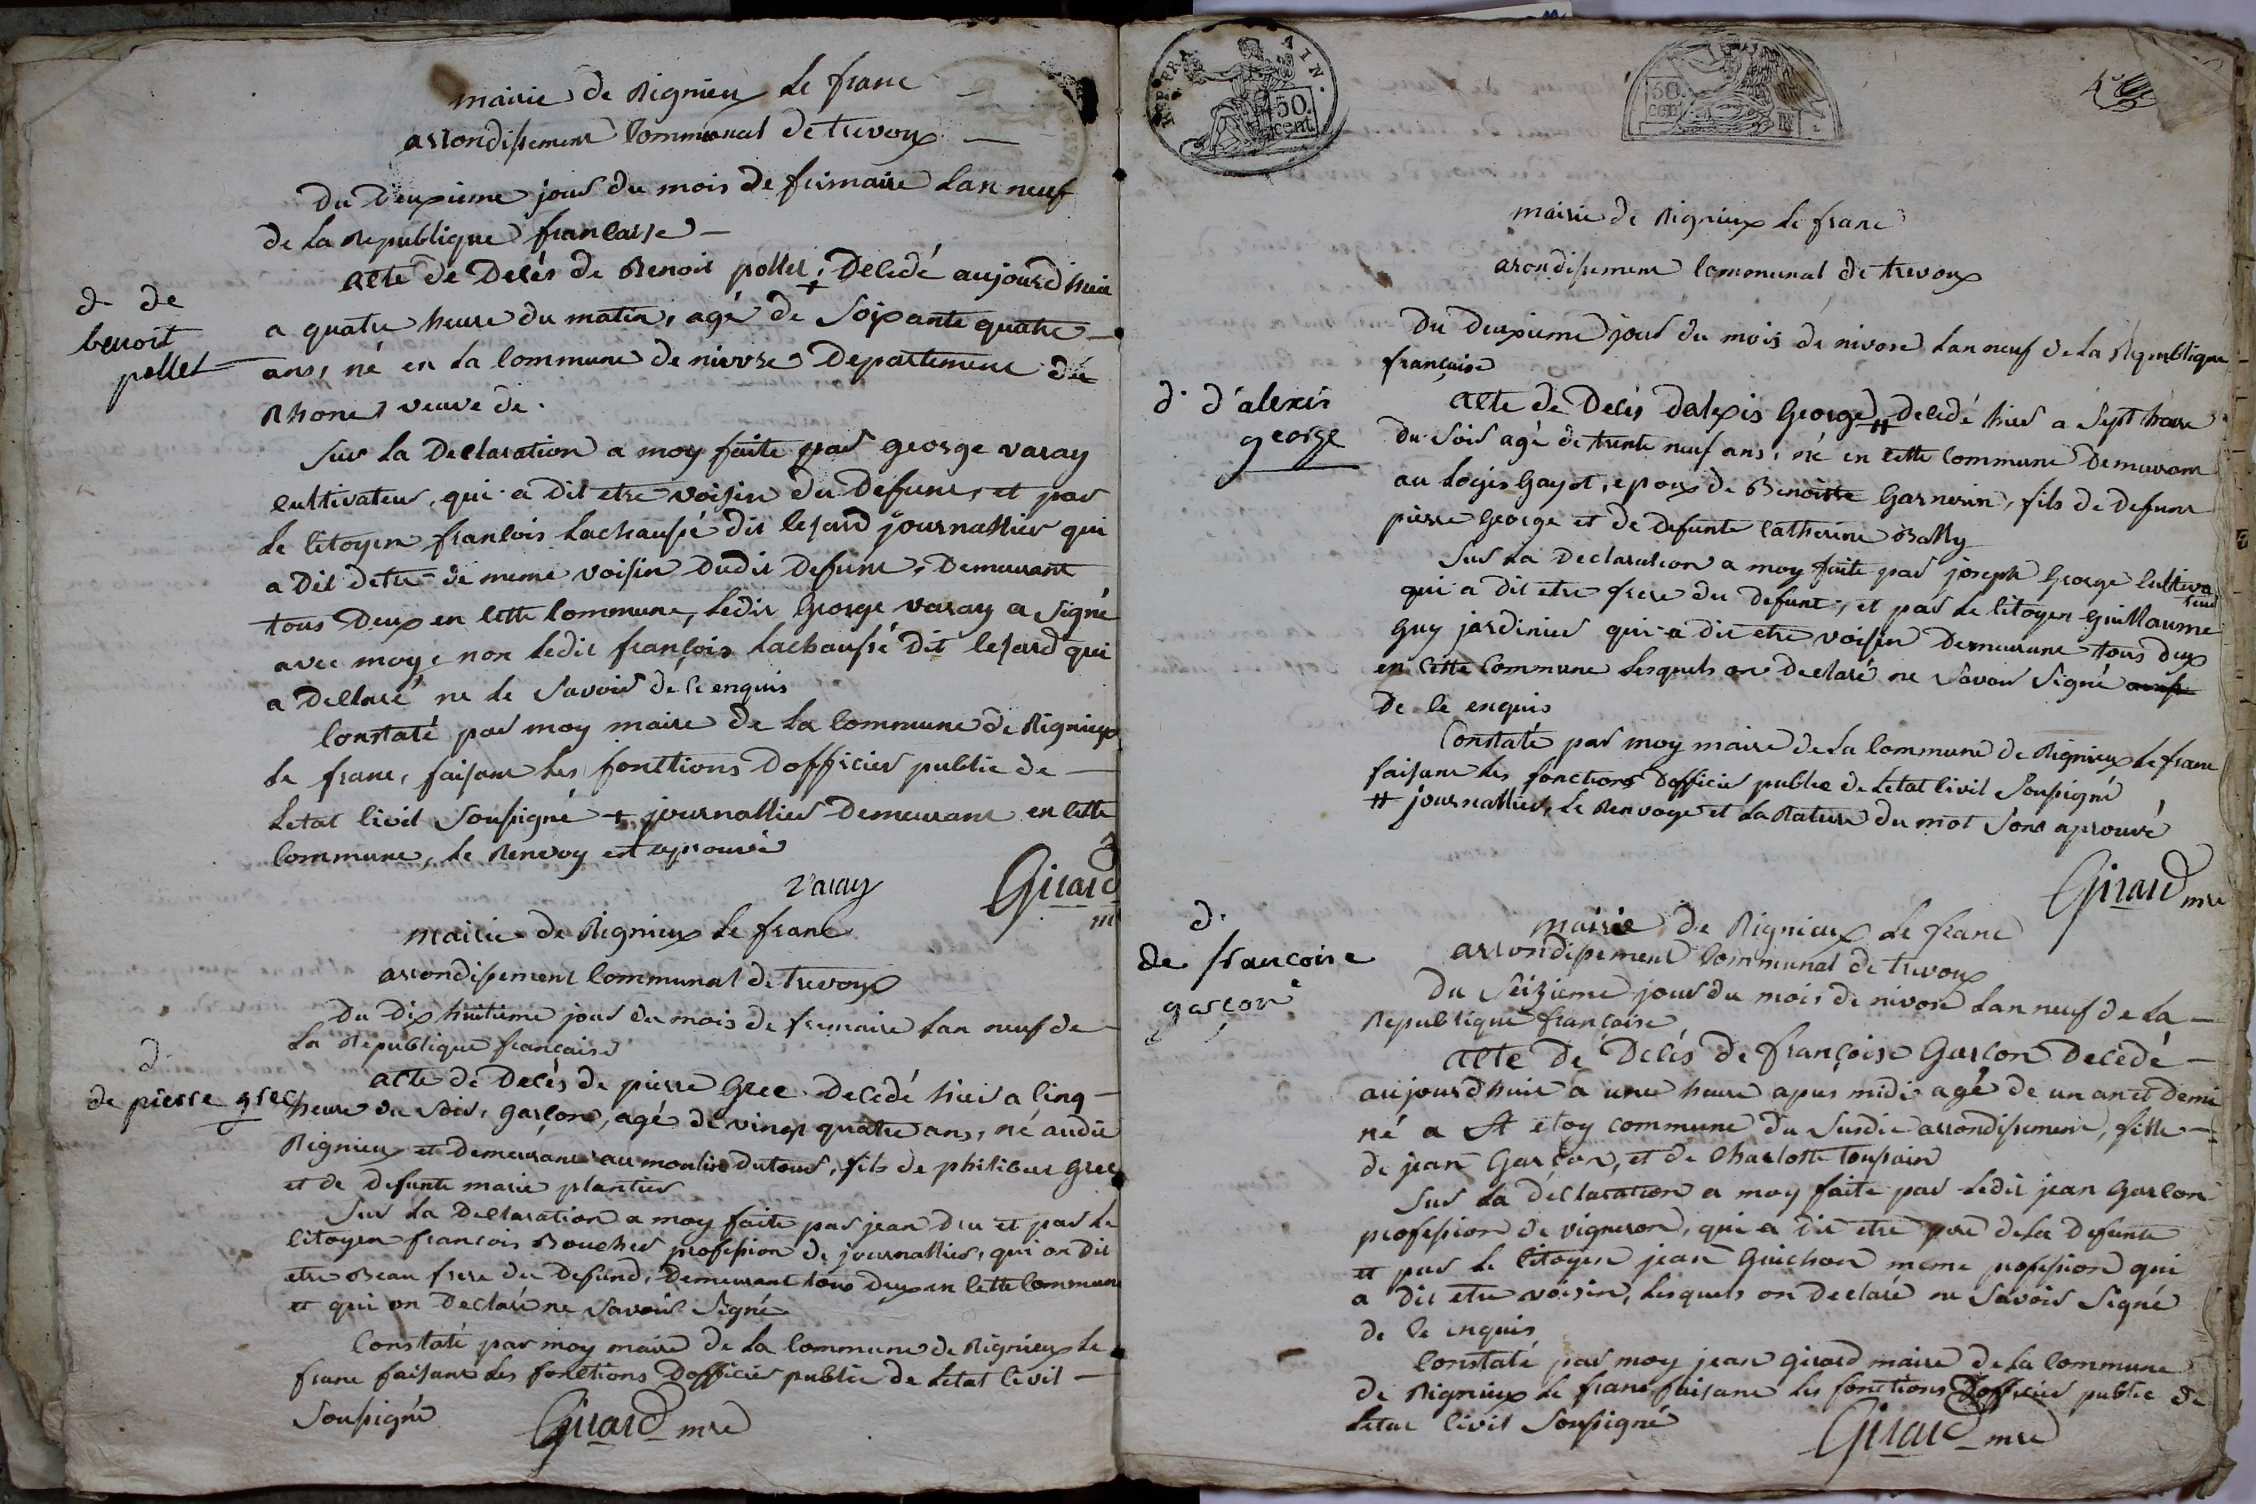 mairie de Rignieux Le franc
arrondissement Communal de trevoux
Du Deuxieme jour du mois de frimaire Lan neuf
de La Republique francaise
acte de Decés de Benoit pollet + Decedé aujourdhuie
d. de
benoit
pollet
a quatre heure du matin, agé de Soixante quatre
ans, né en la Commune de Departement du
Rhone, veuve de.
Sur La Declaration a moy faite par george varay
cultivateur, qui a dit etre voisin du Defunt, et par
Le Citoyen francois Lachaussé dit lesard journallier qui
a Dit detre de meme voisin Dudit Defunt, Demeurant
tous Deux en cette Commune, Ledit George varay a Signé
avec moy e non Ledit françois Lachaussé Dit lesard qui
a Dellaré ne Le Savoir de ce enquis
Constaté par moy maire de La Commune de Rignieux
Le franc, faisant Les fonctions Dofficier public de
Letat Civil Soussigné + journallier Demeurant en cette
Commune, Le Renvoy est aprouvé
Varay
Girard
m
mairie de Rignieux Le franc
arrondissement Communal de trevoux
Du Dix huitieme jour du mois de frimaire Lan neuf de
La Republique française
d.
de pierre grec
acte de Decés de pierre Grec Decedé hier a Cinq
heure du Soir, garçon, agé de vingt quatre ans, né audit
Rignieux et Demeurant au moulin Dutour, fils de philibert Grec
et de Defunte marie plantier
Sur La Declaration a moy faite par jean Dru et par Le
Citoyen francois Boucher profession de journallier, qui on dit
etre Beau frere du Defund, Demeurant tous Deux en Cette Commune
et qui on Declaré ne Savoir Signé
Constaté par moy maire de La Commune de Rignieux Le
franc faisant Les fonctions Dofficier public de Letat Civil
Soussigné
Girard mre
REP. FRA
AIN.
50
cent
50
cent
mairie de Rignieux Le franc
arondissement Communal de trevoux
Du Deuxieme jour du mois de nivose Lan neuf de La Republique
française
d. d'alexis
george
acte de Decés Dalexis George # Decedé hier a Sept heure
du Soir agé de trente neuf ans, né en cette Commune Demeurant
au Logis Gayot, epoux de Benoitte Garnerin, fils de Defunt
pierre George et de Defunte Catherine Bally
Sur La Declaration a moy faite par joseph George Cultiva
teur
qui a dit etre frere du Defunt, et par Le Citoyen Guillaume
Guy jardinier qui a dit etre voisin Demeurant tous deux
en Cette Commune Lesquels on Declaré ne Savoir Signé
De Ce enquis
Constaté par moy maire de La Commune de Rignieux Le franc
faisant Les fonctions Dofficier public de Letat Civil Soussigné
# journallier, Le Renvoye et La Rature du mot Sont aprouvé
Girard mre
mairie de Rignieux Le franc
arrondissement Communal de trevoux
d.
de francoise
garçon
Du Seizieme jour du mois de nivose Lan neuf de La
Republique françaisse
acte de Decés de françoise Garçon Decedé
aujourdhuie a une heure apres midi agé de un an et Demi
né a St eloy commune du Susdit arrondissement, fille
de jean Garçon, et de Charlotte toussain
Sur La déclaration a moy faite par Ledit jean Garcon
profession de vigneron, qui a Dit etre pere de La Defunte
et par Le Citoyen jean Guichon meme profession qui
a Dit etre voisin, Lesquels on Declaré ne Savoir Signé
de Ce enquis
Constaté par moy jean Girard maire de La Commune
de Rignieux Le franc faisant Les fonctions Dofficier public de
Letat Civil Soussigné
Girard mre